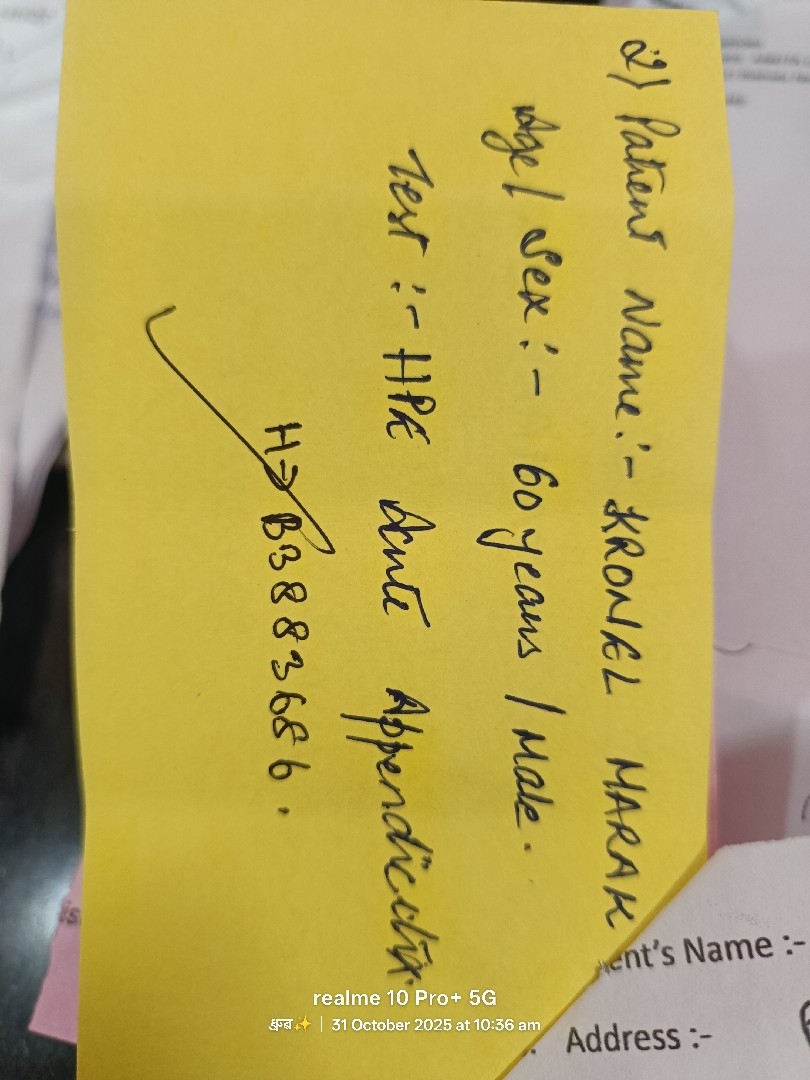 2) Patient Name:- KRONEL MARAK
Age / Sex :- 60 years / Male.
Test :- HPE Acute Appendicitis.
H→ B3883686.
ent's Name :-
Address :-
realme 10 Pro+ 5G
ধ্রুব✨ | 31 October 2025 at 10:36 am